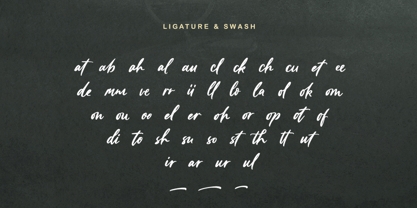 LIGATURE & SWASH
at ab ah al au cl ck ch cu et ee
de mm ve rr ii ll lo la d ok om
on ou oo el er oh or op ot of
di to sh su so st th tt ut
ir ar ur ul